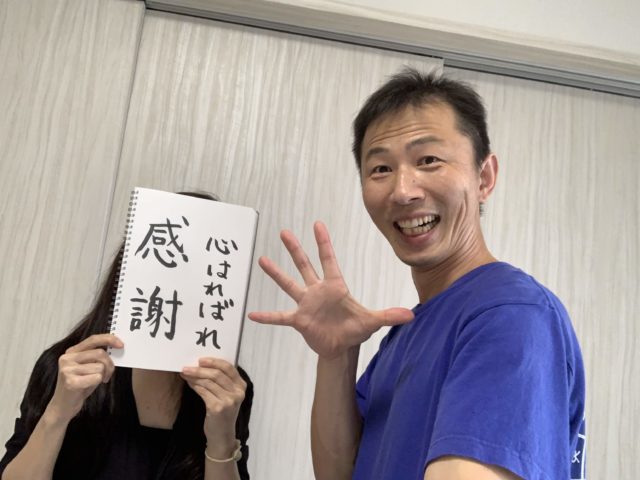 心はればれ
感謝